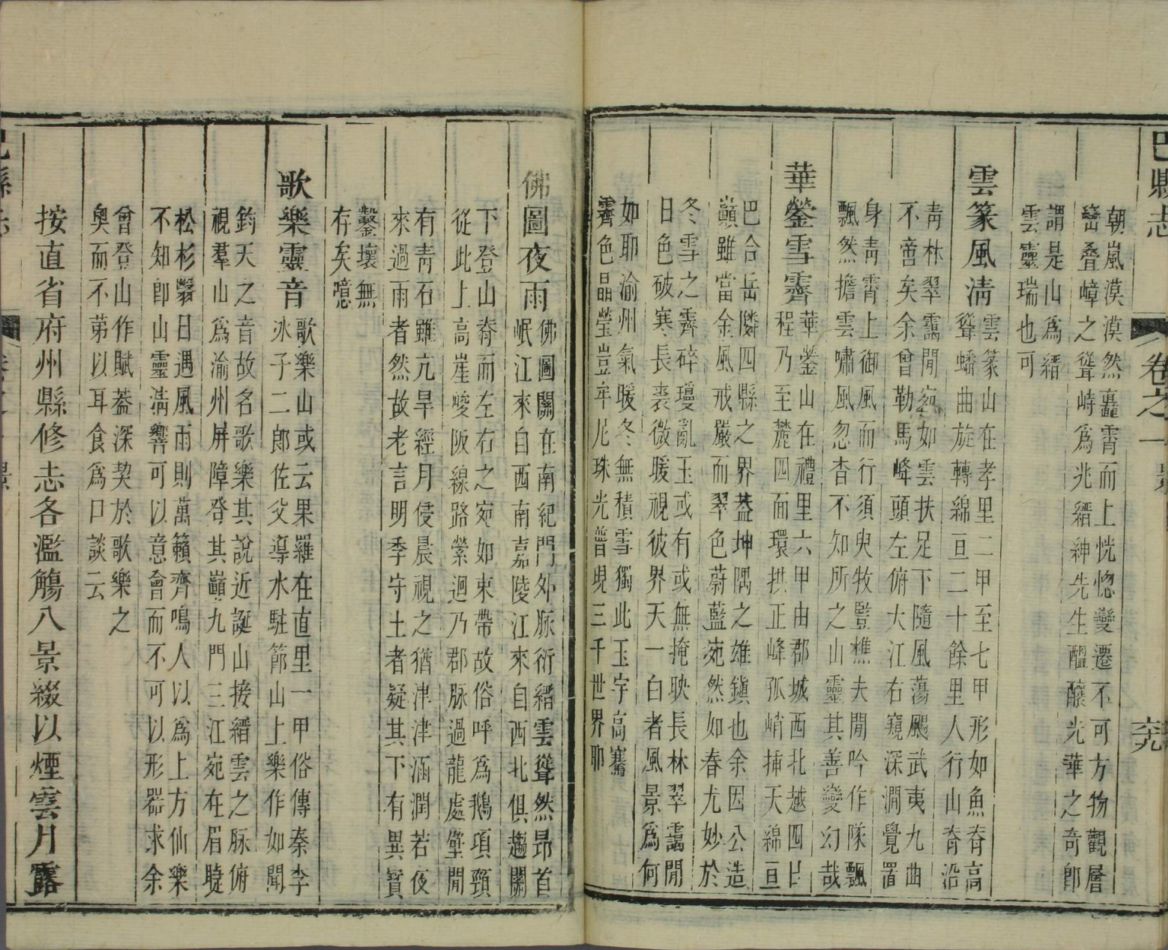 巴縣志
卷之一
景
朝嵐漠漠然靄霄而上恍惚變遷不可方物觀層
巒叠嶂之聳峙爲兆縉紳先生醞釀光華之奇卽
謂是山爲縉
雲靈瑞也可
雲篆風清
雲篆山在孝里二甲至七甲形如魚脊高
聳蟠曲旋轉綿亘二十餘里人行山脊沿
青林翠靄閒宛如雲扶足下隨風蕩颺武夷九曲
不啻矣余曾勒馬峰頭左俯大江右窺深澗覺置
身青霄上御風而行須臾牧豎樵夫閒吟作隊飄
飄然擔雲嘯風忽杳不知所之山靈其善變幻哉
華鎣雪霽
華鎣山在禮里六甲由郡城西北越四日
程乃至麓四面環拱正峰孤峭揷天綿亘
巴合岳隣四縣之界葢坤隅之雄鎭也余因公造
巔雖當金風戒嚴而翠色蔚藍宛然如春尤妙於
冬雪之霽碎瓊亂玉或有或無掩映長林翠靄閒
日色破寒長裘微暖視彼界天一白者風景爲何
如耶渝州氣暖冬無積雪獨此玉宇高騫
霽色晶瑩豈牟尼珠光普現三千世界耶
佛圖夜雨
佛圖關在南紀門外脈衍縉雲聳然昻首
岷江來自西南嘉陵江來自西北俱遶關
下登山脊而左右之宛如束帶故俗呼爲鵝項頸
從此上高崖峻阪線路縈迴乃郡脈過龍處壁閒
有青石雖亢旱經月侵晨視之猶津津涵潤若夜
來過雨者然故老言明季守土者疑其下有異寶
鑿壞無
存矣噫
歌樂靈音
歌樂山或云果羅在直里一甲俗傳秦李
冰子二郎佐父導水駐節山上樂作如聞
鈞天之音故名歌樂其說近誕山接縉雲之脈俯
視羣山爲渝州屏障登其巔九門三江宛在眉睫
松杉翳日遇風雨則萬籟齊鳴人以爲上方仙樂
不知卽山靈淸響可以意會而不可以形器求余
曾登山作賦葢深契於歌樂之
奥而不第以耳食爲口談云
按直省府州縣修志各濫觴八景綴以煙雲月露